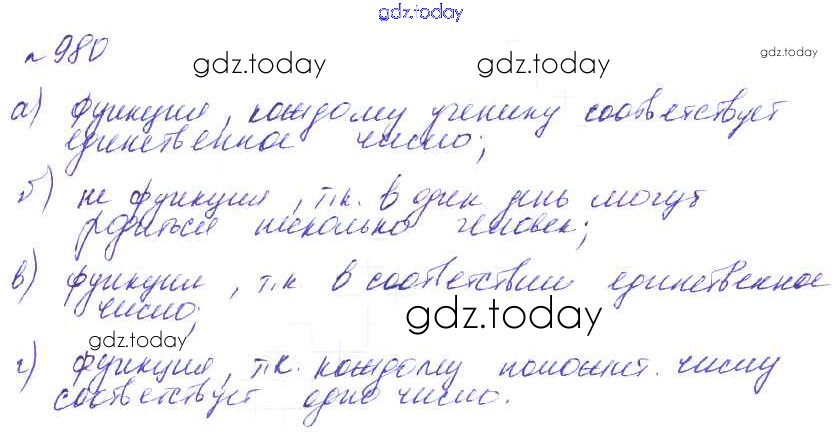 gdz.today
№980
gdz.today
gdz.today
gdz.today
а) функция, каждому ученику соответствует
единственное число;
б) не функция, т.к. в один день могут
родиться несколько человек;
в) функция, т.к. в соответствии единственное
число;
gdz.today
gdz.today
г) функция, т.к. каждому полож ит. числу
соответствует одно число.